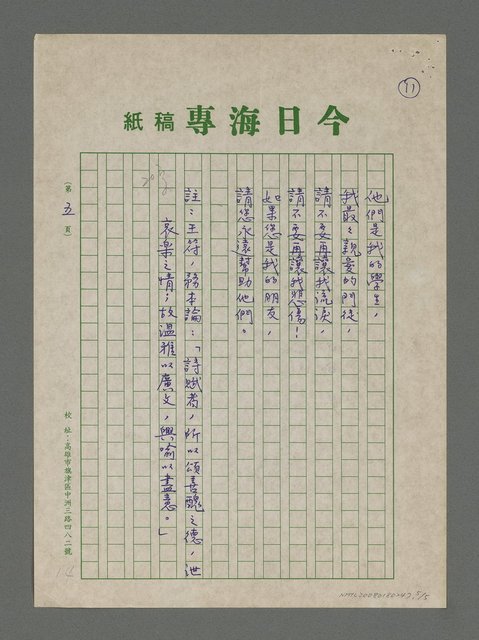 11
今日海專稿紙
他們是我的學生，
我最最親愛的門徒，
請不要再讓我流淚，
請不要再讓我悲傷！
如果您是我的朋友，
請您永遠幫助他們。
註：王符，務本論：「詩賦者，所以頌善醜之德，洩
哀樂之情；故溫雅以廣文，興喻以盡意。」
（第五頁）
校址：高雄市旗津區中洲三路四八二號
NMTL20080180247 5/5